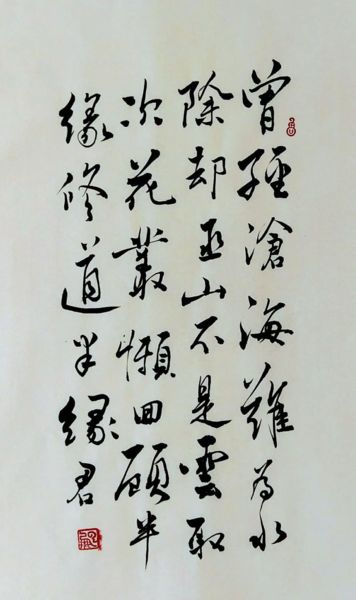 曾經滄海難為水
除却巫山不是雲取
次花叢懶回顧半
緣修道半緣君